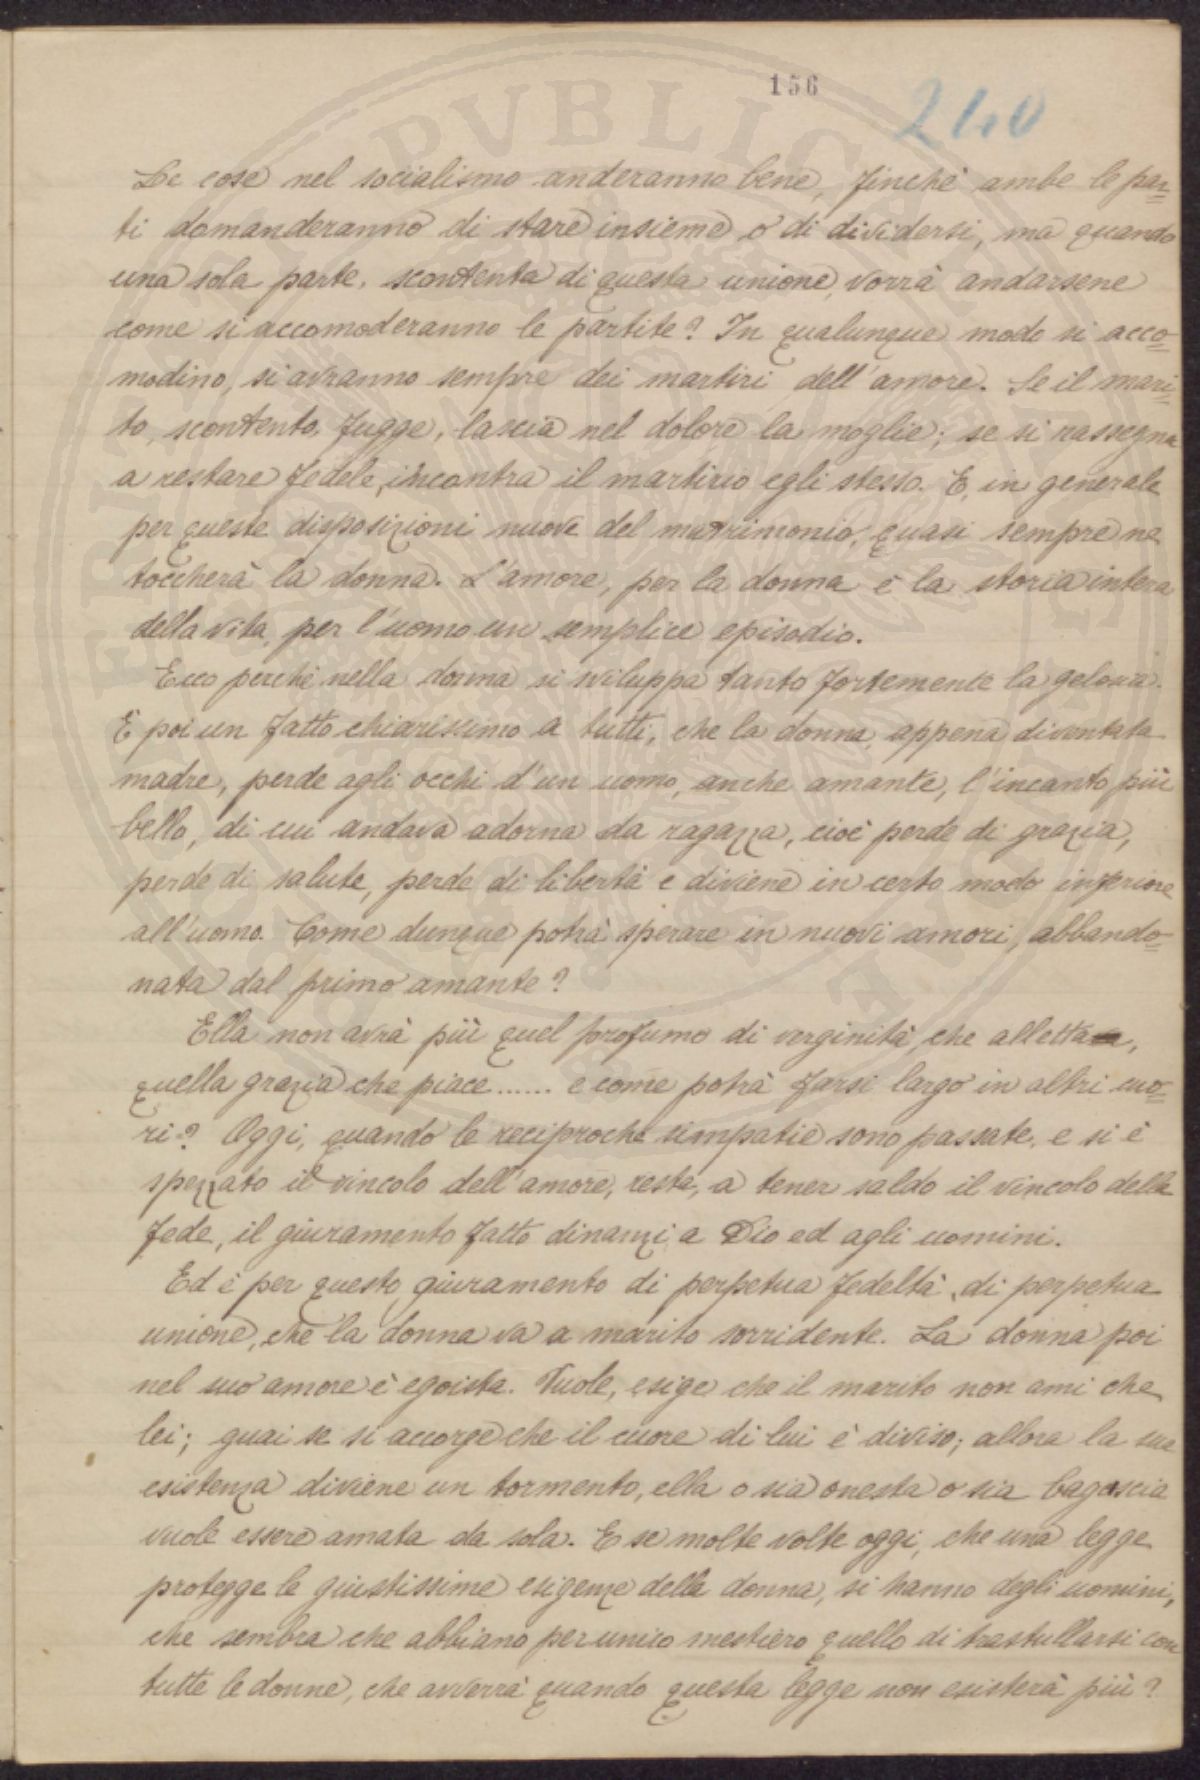 156
240
Le cose nel socialismo anderanno bene, finchè ambe le par=
ti domanderanno di stare insieme o di dividersi, ma quando
una sola parte, scontenta di questa unione, vorrà andarsene
come si accomoderanno le partite? In qualunque modo si acco=
modino, si avranno sempre dei martiri dell'amore. Se il mari=
to, scontento, fugge, lascia nel dolore la moglie; se si rassegna
a restare fedele, incontra il martirio egli stesso. E, in generale
per queste disposizioni nuove del matrimonio, quasi sempre ne
toccherà la donna. L'amore, per la donna è la storia intera
della vita, per l'uomo un semplice episodio.
Ecco perchè nella donna si sviluppa tanto fortemente la gelosia.
È poi un fatto chiarissimo a tutti, che la donna, appena diventata
madre, perde agli occhi d'un uomo, anche amante, l'incanto più
bello, di cui andava adorna da ragazza, cioè perde di grazia,
perde di salute, perde di libertà e diviene in certo modo inferiore
all'uomo. Come dunque potrà sperare in nuovi amori, abbando=
nata dal primo amante?
Ella non avrà più quel profumo di verginità, che alletta,
quella grazia che piace...... e come potrà farsi largo in altri cuo=
ri? Oggi, quando le reciproche simpatie sono passate, e si è
spezzato il vincolo dell'amore, resta, a tener saldo il vincolo della
fede, il giuramento fatto dinanzi a Dio ed agli uomini.
Ed è per questo giuramento di perpetua fedeltà, di perpetua
unione, che la donna va a marito sorridente. La donna poi
nel suo amore è egoista. Vuole, esige che il marito non ami che
lei; guai se si accorge che il cuore di lui è diviso; allora la sua
esistenza diviene un tormento, ella o sia onesta o sia bagascia
vuole essere amata da sola. E se molte volte oggi, che una legge
protegge le giustissime esigenze della donna, si hanno degli uomini,
che sembra che abbiano per unico mestiero quello di trastullarsi con
tutte le donne, che avverrà quando questa legge non esisterà più?